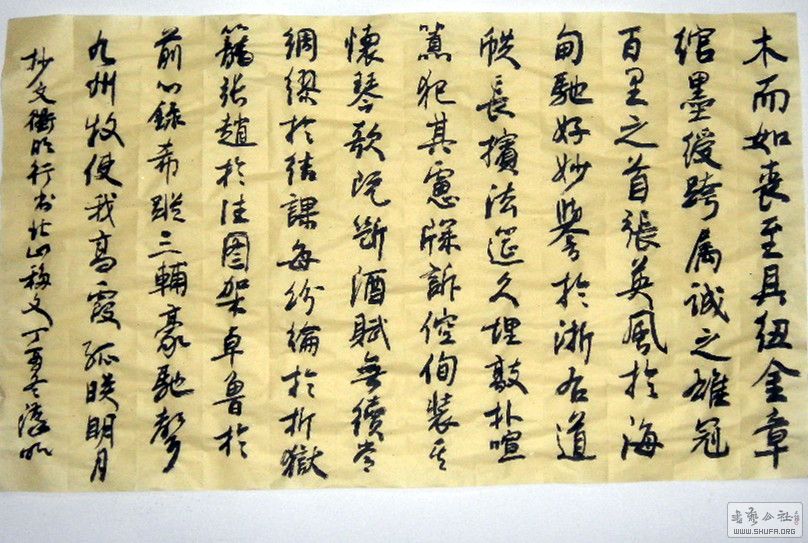 木而如丧至具纽金章
绾墨绶跨属城之雄冠
百里之首張英風於海
甸馳妙譽於浙右道
帙長擯法筵久埋敲扑喧
囂犯其慮牒訴倥傯裝其
懷琴歌既斷酒賦無續常
綢繆於结課每紛綸於折獄
籠张趙於往圖架卓魯於
前箓希蹤三輔豪馳聲
九州牧使我高霞孤映明月
抄文徵明行书北山移文丁酉冬
WWW.SHUFA.ORG